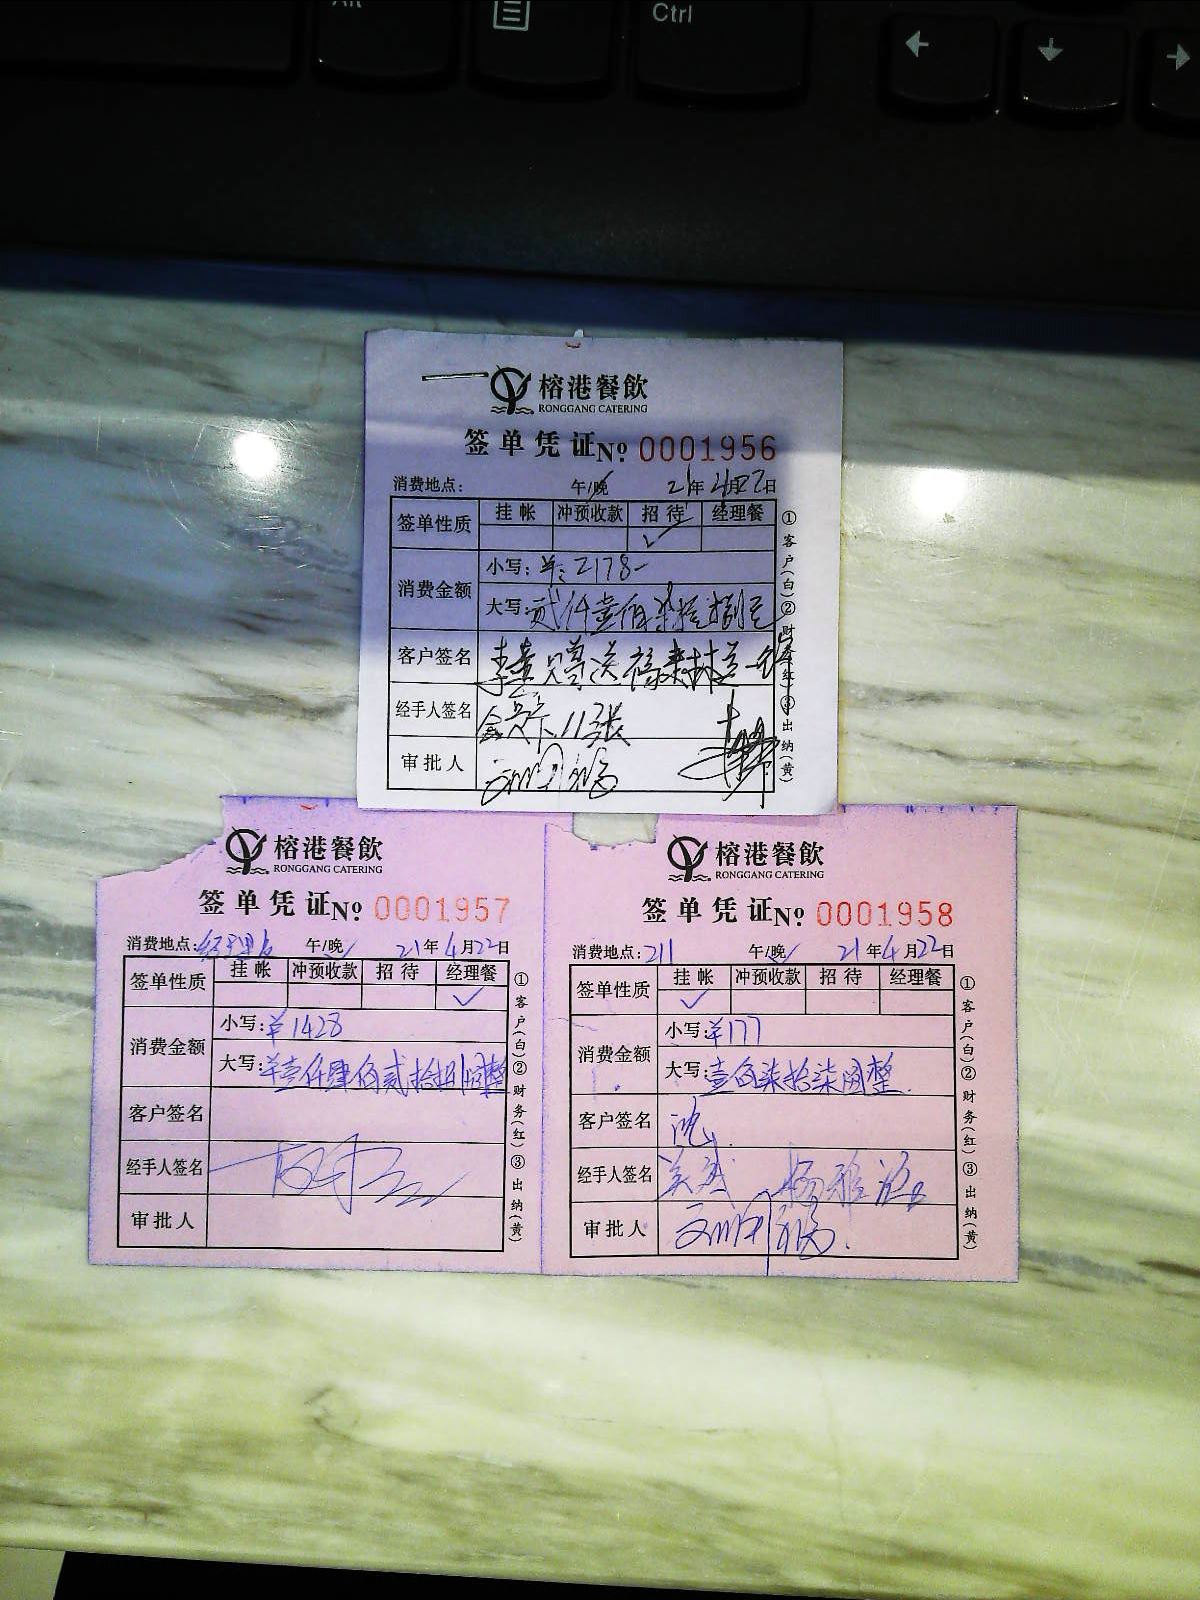 Alt
Ctrl
榕港餐飲
RONGGANG CATERING
签单凭证 № 0001956
消费地点: 午/晚 21年4月22日
签单性质 挂帐 冲预收款 招待 经理餐
✓
消费金额 小写: ¥: 2178-
大写: 贰仟壹佰柒拾捌元
客户签名
经手人签名 11张
审批人
①客户(白)②财务(红)③出纳(黄)
榕港餐飲
RONGGANG CATERING
签单凭证 № 0001957
消费地点: 午/晚 21年4月22日
签单性质 挂帐 冲预收款 招待 经理餐
✓
消费金额 小写: ¥1428
大写: ¥壹仟肆佰贰拾捌圆整
客户签名
经手人签名
审批人
①客户(白)②财务(红)③出纳(黄)
榕港餐飲
RONGGANG CATERING
签单凭证 № 0001958
消费地点: 211 午/晚 21年4月22日
签单性质 挂帐 冲预收款 招待 经理餐
✓
消费金额 小写: ¥177
大写: 壹佰柒拾柒圆整
客户签名
经手人签名
审批人
①客户(白)②财务(红)③出纳(黄)